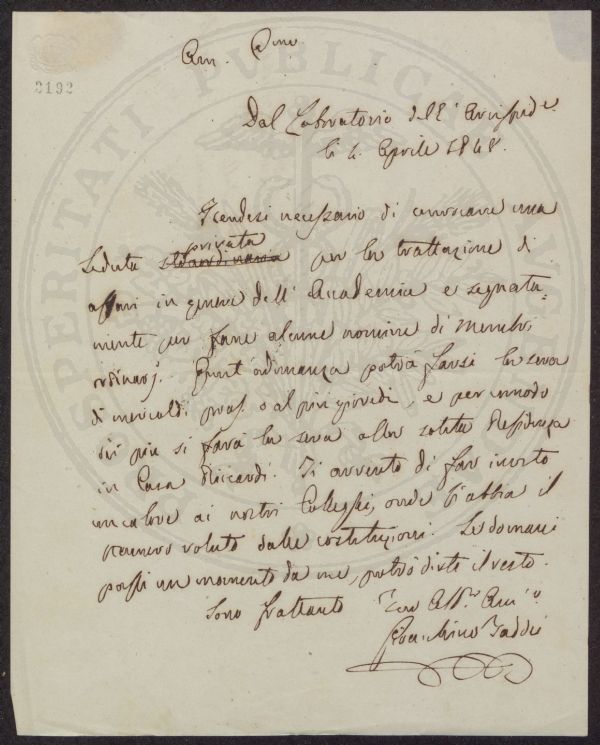 Am. Cmo
2192
Dal Laboratorio dell' Arcisped.e
li 4. Aprile 1848.
Rendesi necessario di convocare una
privata
Seduta straordinaria per la trattazione di
affari in genere dell' Accademia e segnata-
mente per fare alcune nomine di Membri
ordinarj. Quest' adunanza potrà farsi la sera
di mercoldì pros. o al più giovedì, e per comodo
dei più si farà la sera alla solita Residenza
in Casa Riccardi. Ti avverto di far invito
in calore ai nostri Colleghi, onde s'abbia il
numero voluto dalle costituzioni. Se domani
passi un momento da me, potrò dirti il resto.
Sono frattanto Tuo Aff.o Am.o
Gioacchino Taddei
PROSPERITATI PUBLICAE